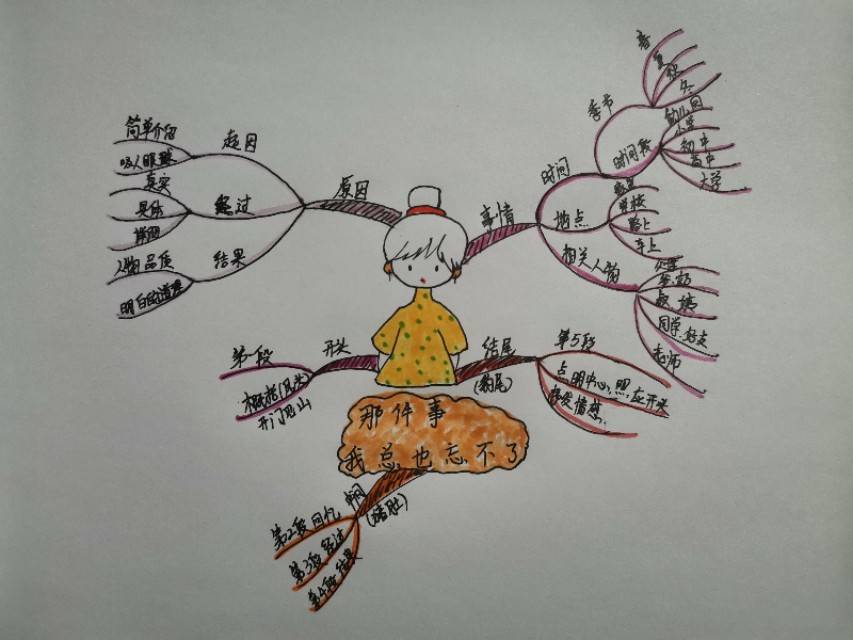 那件事
我总也忘不了
事情
时间
季节
春
夏
秋
冬
时间段
幼儿园
小学
初中
高中
大学
地点
家里
学校
路上
车上
相关人物
父母
爷奶
叔姨
同学好友
老师
结尾
(豹尾)
第5段
点明中心,照应开头
抒发情感.
中间
(猪肚)
第2段 回忆
第3段 经过
第4段 结果
开头
第一段
概括(凤头)
开门见山
原因
起因
简单介绍
吸人眼球
经过
真实
具体
结果
人物品质
明白的道理